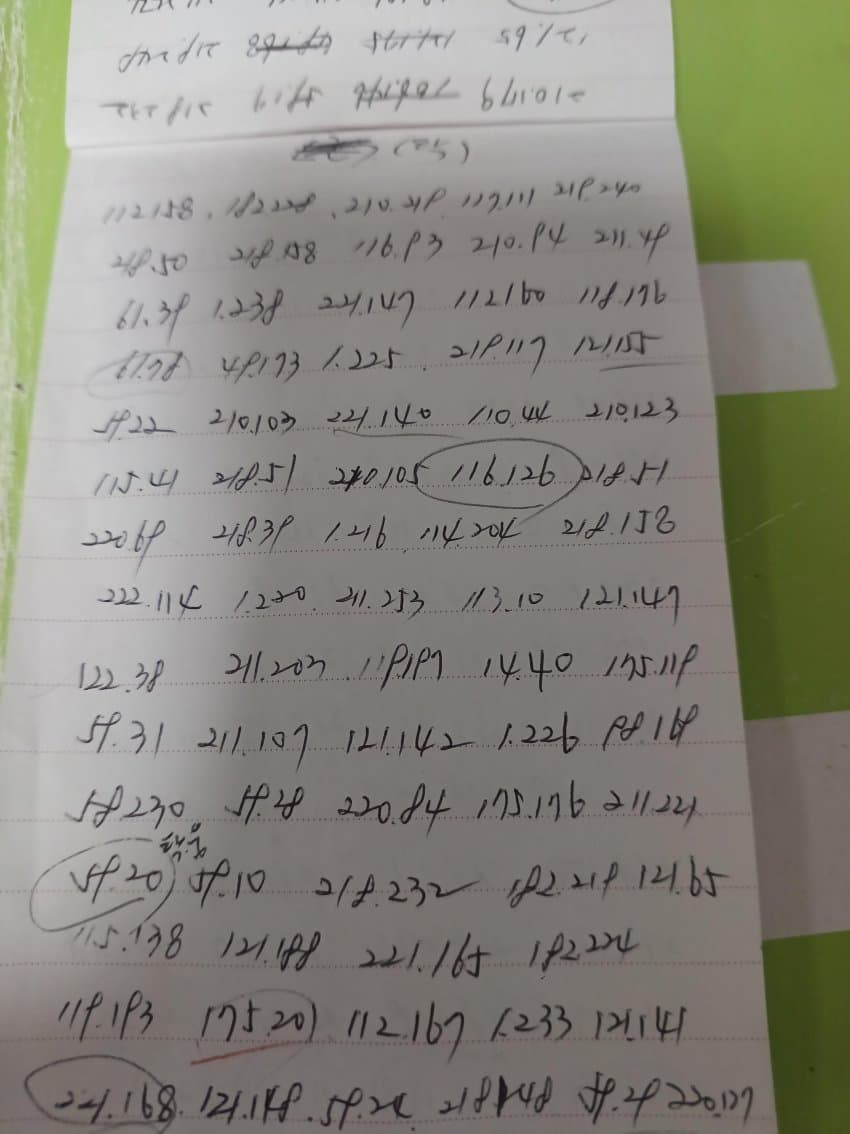 (25)
112.158. 182.228. 210.218. 117.111 219.240
218.50 218.158 116.93 210.94 211.49
61.39 1.238 221.147 112.160 118.176
61.78 49.173 1.225. 219.117 121.155
59.22 210.103 221.140 110.44 210.123
115.41 218.51 210.105 116.126 218.51
220.69 218.39 1.216 114.204 218.158
222.114 1.220. 211.253 113.10 121.147
122.38 211.203 119.197 14.40 175.119
59.31 211.107 121.142 1.226 98.169
58.230 59.28 220.84 175.176 211.221
59.20 59.10 218.232 182.219 121.65
115.138 121.188 221.165 182.224
119.193 175.201 112.167 1.233 121.141
221.168. 121.148. 59.24 218.148 59.29 220.127